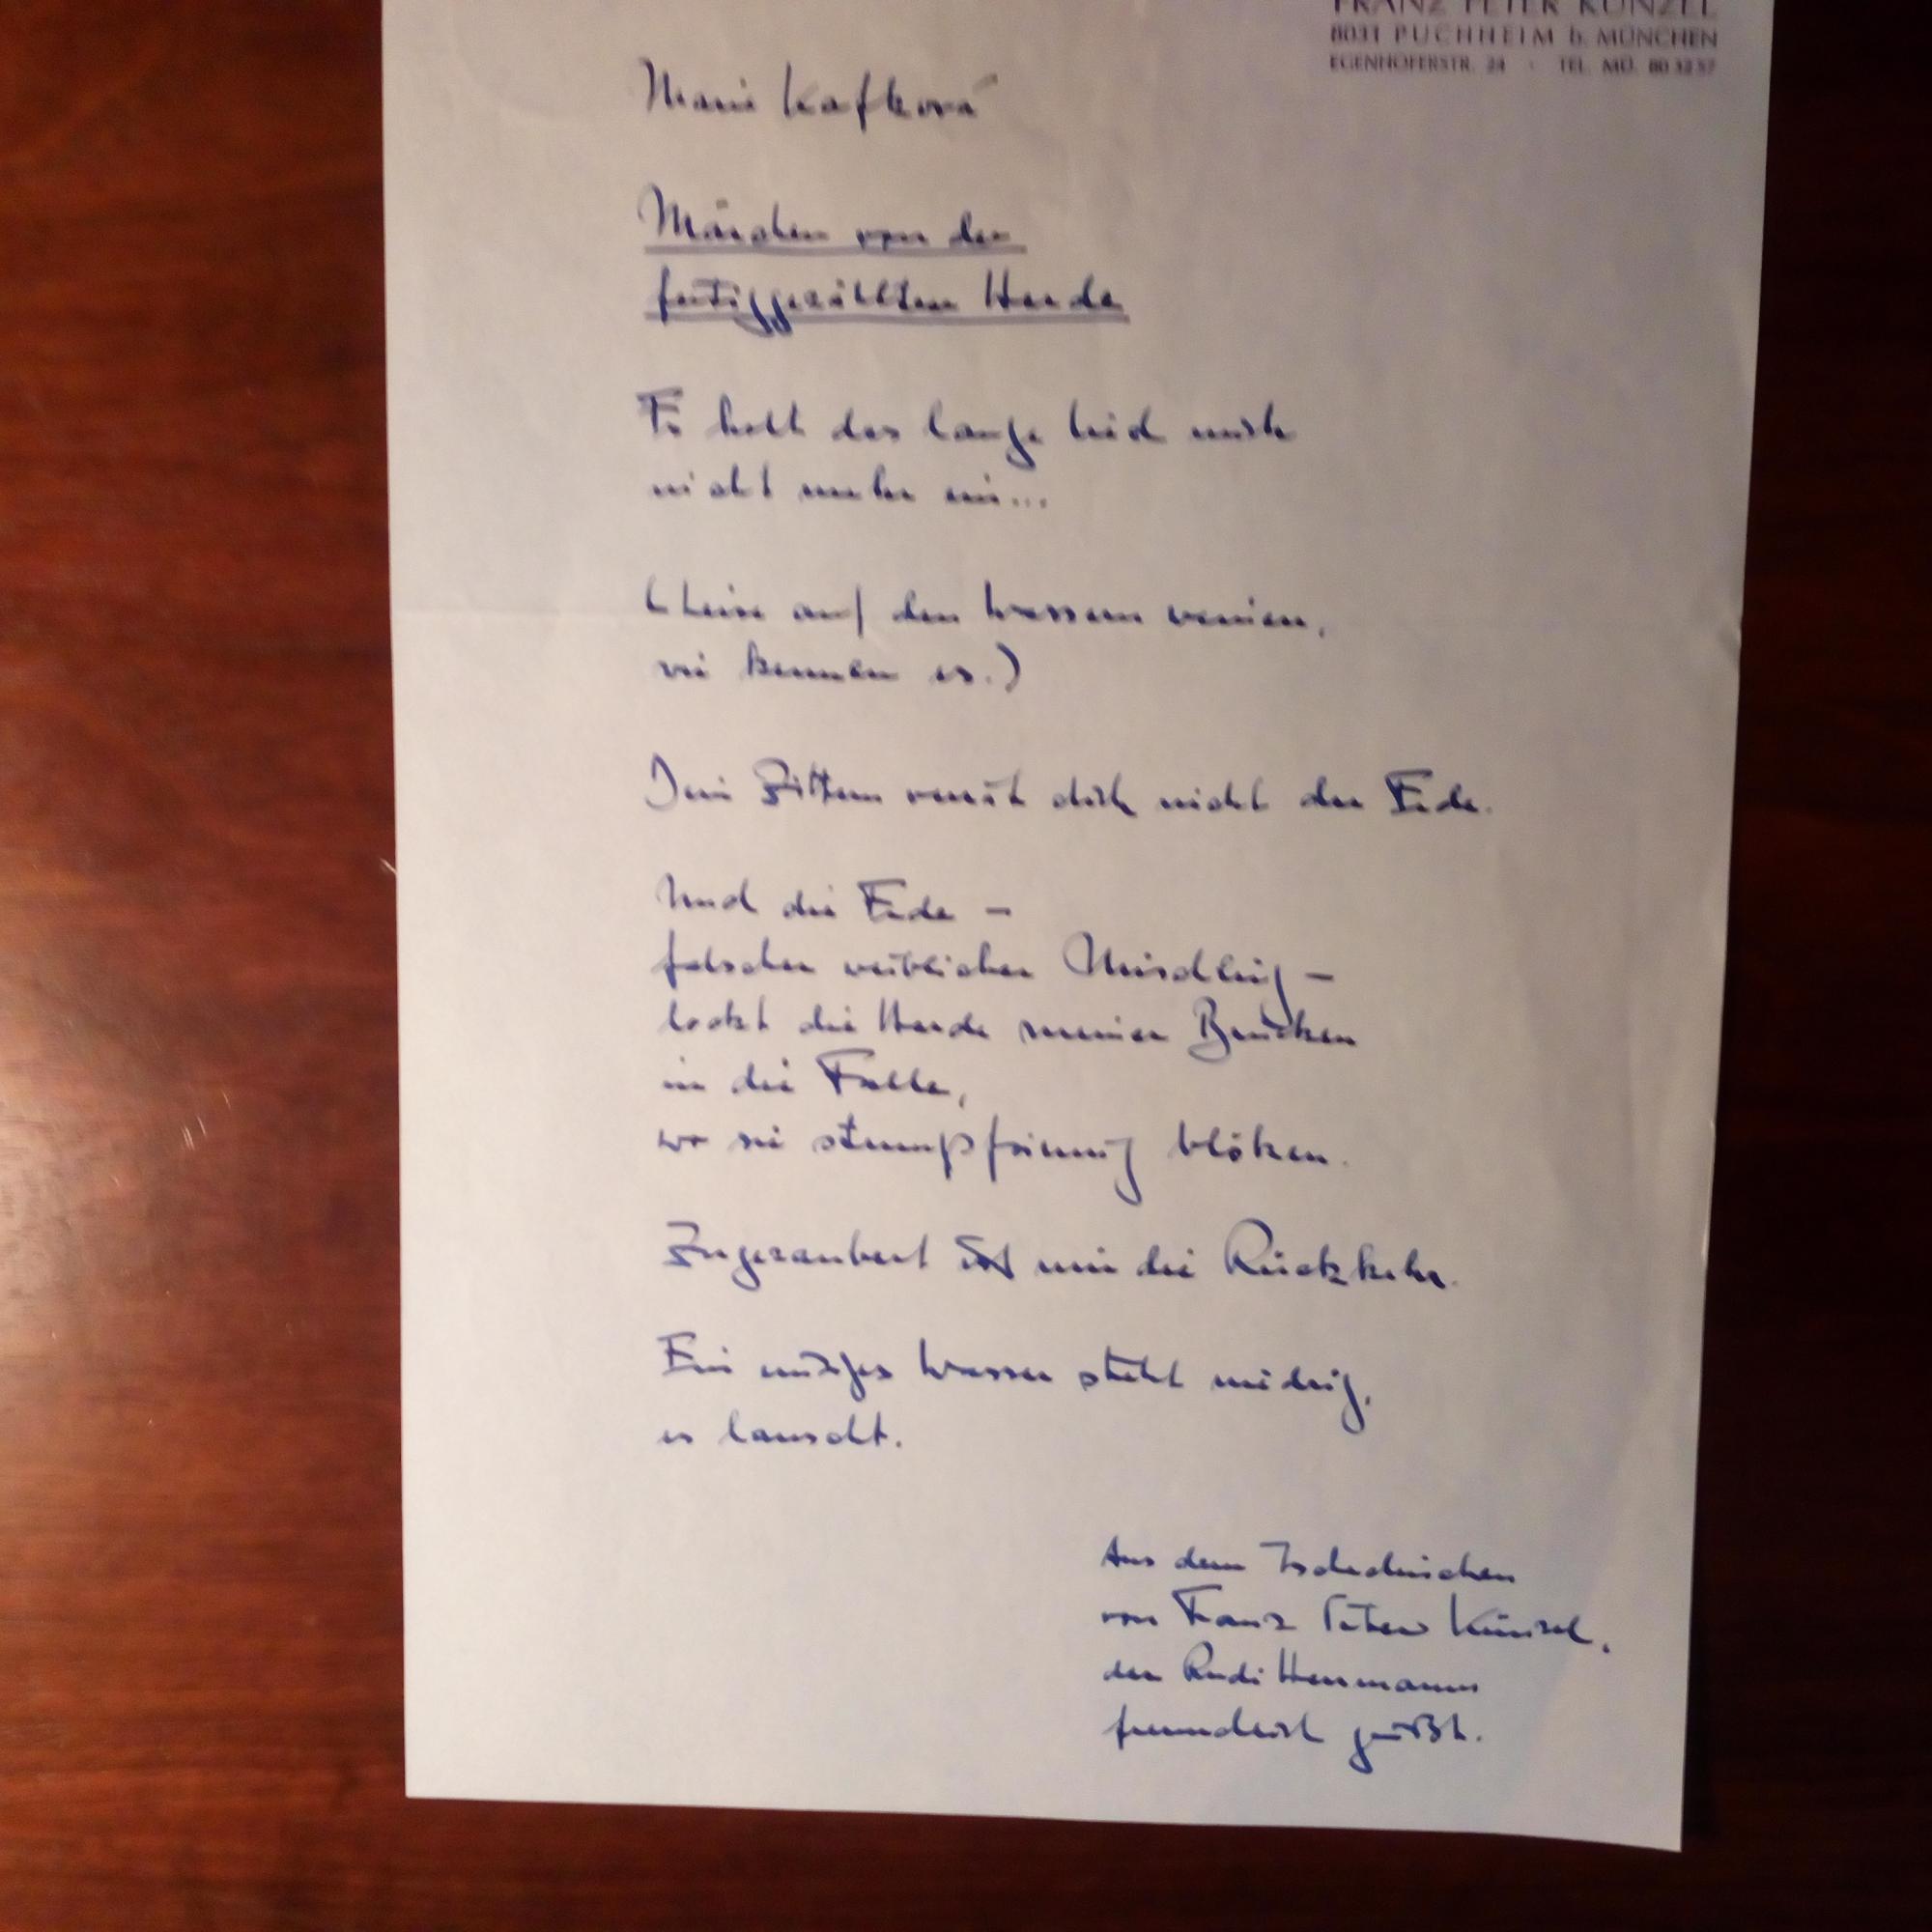 FRANZ PETER KÜNZEL
8031 PUCHHEIM b. MÜNCHEN
EGENHOFERSTR. 24 · TEL. MÜ. 80 32 57
Marie Kafková
Märchen von der
fertiggezählten Herde
Es holt das lange Leid mich
nicht mehr ein...
(Leise auf den Wassern weinen,
wir kennen es.)
Dein Zittern verrät dich nicht der Erde.
Und die Erde –
falscher weiblicher Mischling –
lockt die Herde meiner Brücken
in die Falle,
wo sie stumpfsinnig blöken.
Zugezaubert ist mir die Rückkehr.
Ein mürbes Wasser steht niedrig,
es lauscht.
Aus dem Tschechischen
von Franz Peter Künzel,
der Rudi Herrmanns
freundlich grüßt.